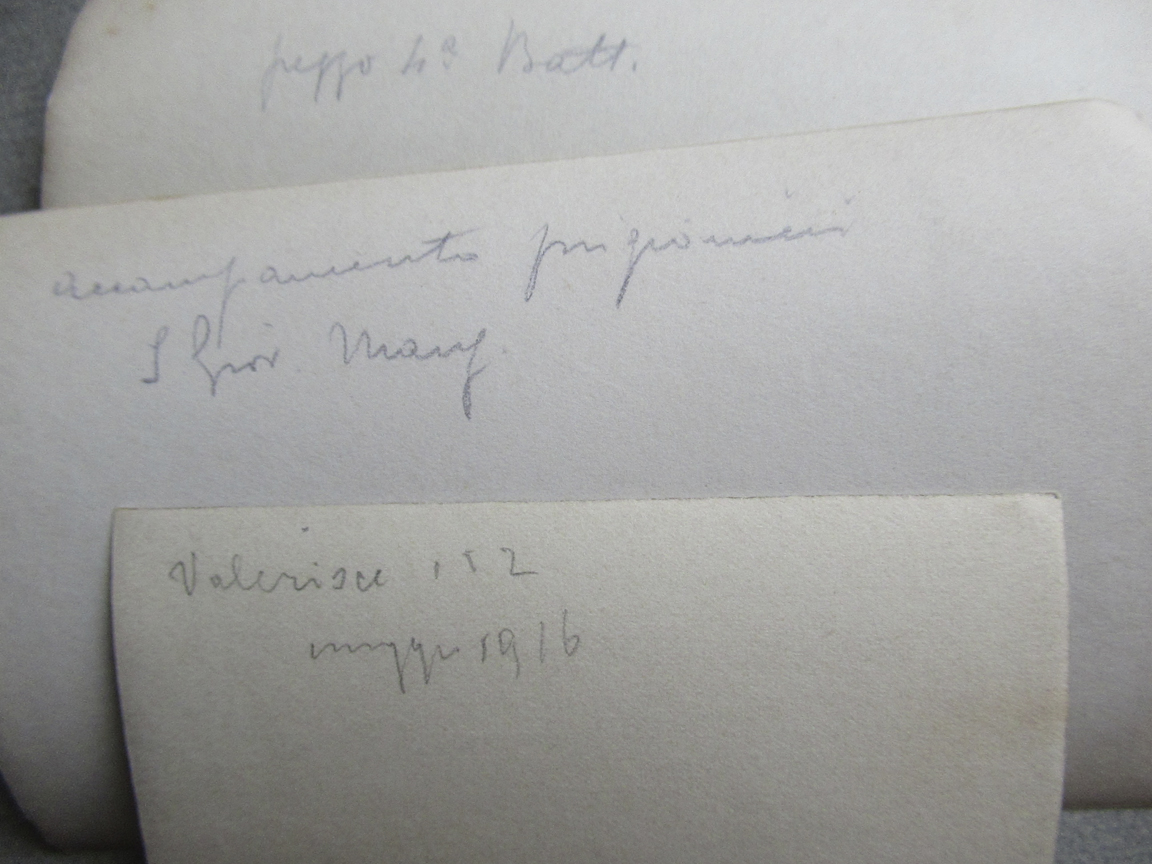 pezzo 4ª Batt.
accampamento prigionieri
S Giov. Manz.
Valerisce
maggio 1916